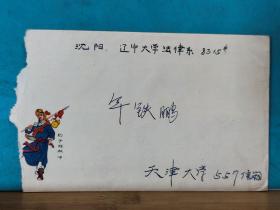 沈阳. 辽宁大学法律系 8315#
年铁鹏
天津大学 557信箱